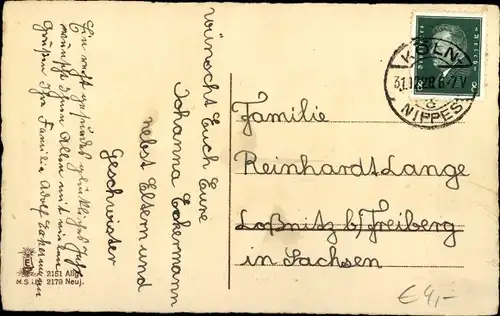 Ein recht gesundes glückliches Jahr
wünscht Ihnen Allen mit vielen
Grüßen Ihre Familie Adolf Eckermann
wünscht Euch Eure
Johanna Eckermann
nebst Eltern und
Geschwister
KÖLN
31.12.28.6-7.V
NIPPES
Familie
Reinhardt Lange
Loßnitz b/Freiberg
in Sachsen
2151 Allg.
M.S i.B. 2179 Neuj.
€4,-